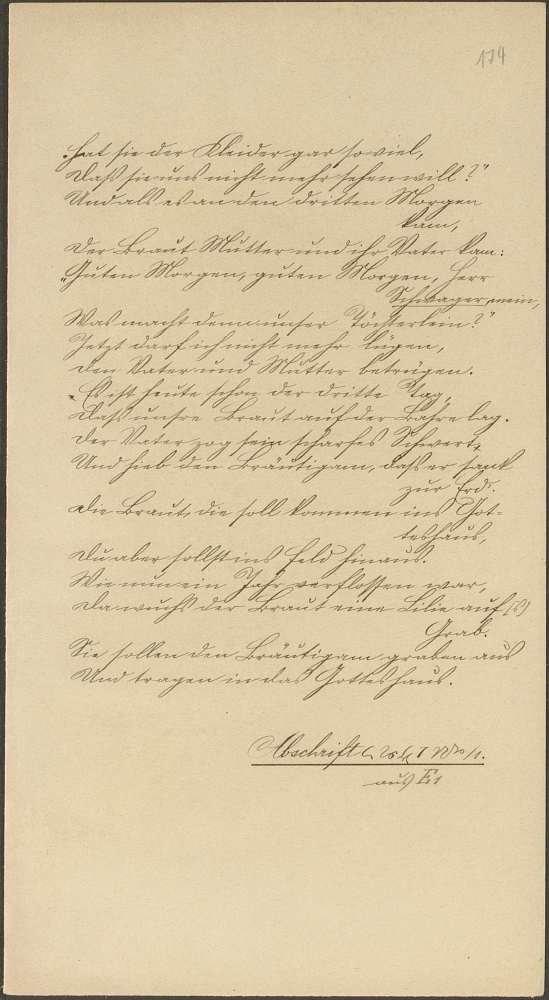 174
„Hat sie der Kleider gar soviel,
Daß sie uns nicht mehr sehen will?"
Und als es an den dritten Morgen
kam,
Der Braut Mutter und ihr Vater kam:
„Guten Morgen, guten Morgen, Herr
Schwager mein,
Was macht denn unser Töchterlein?"
Jetzt darf ich nicht mehr lügen,
Den Vater und Mutter betrügen.
Es ist heute schon der dritte Tag,
Daß unsre Braut auf der Bahre lag.
Der Vater zog sein scharfes Schwert,
Und hieb den Bräutigam, daß er sank
zur Erd.
Die Braut, die soll kommen ins Got-
teshaus,
Du aber sollst ins Feld hinaus.
Wie nun ein Jahr verflossen war,
Da wuchs der Braut eine Lilie auf (s)
Grab.
Sie sollen den Bräutigam graben aus
Und tragen in das Gotteshaus.
Abschrift
aus E1